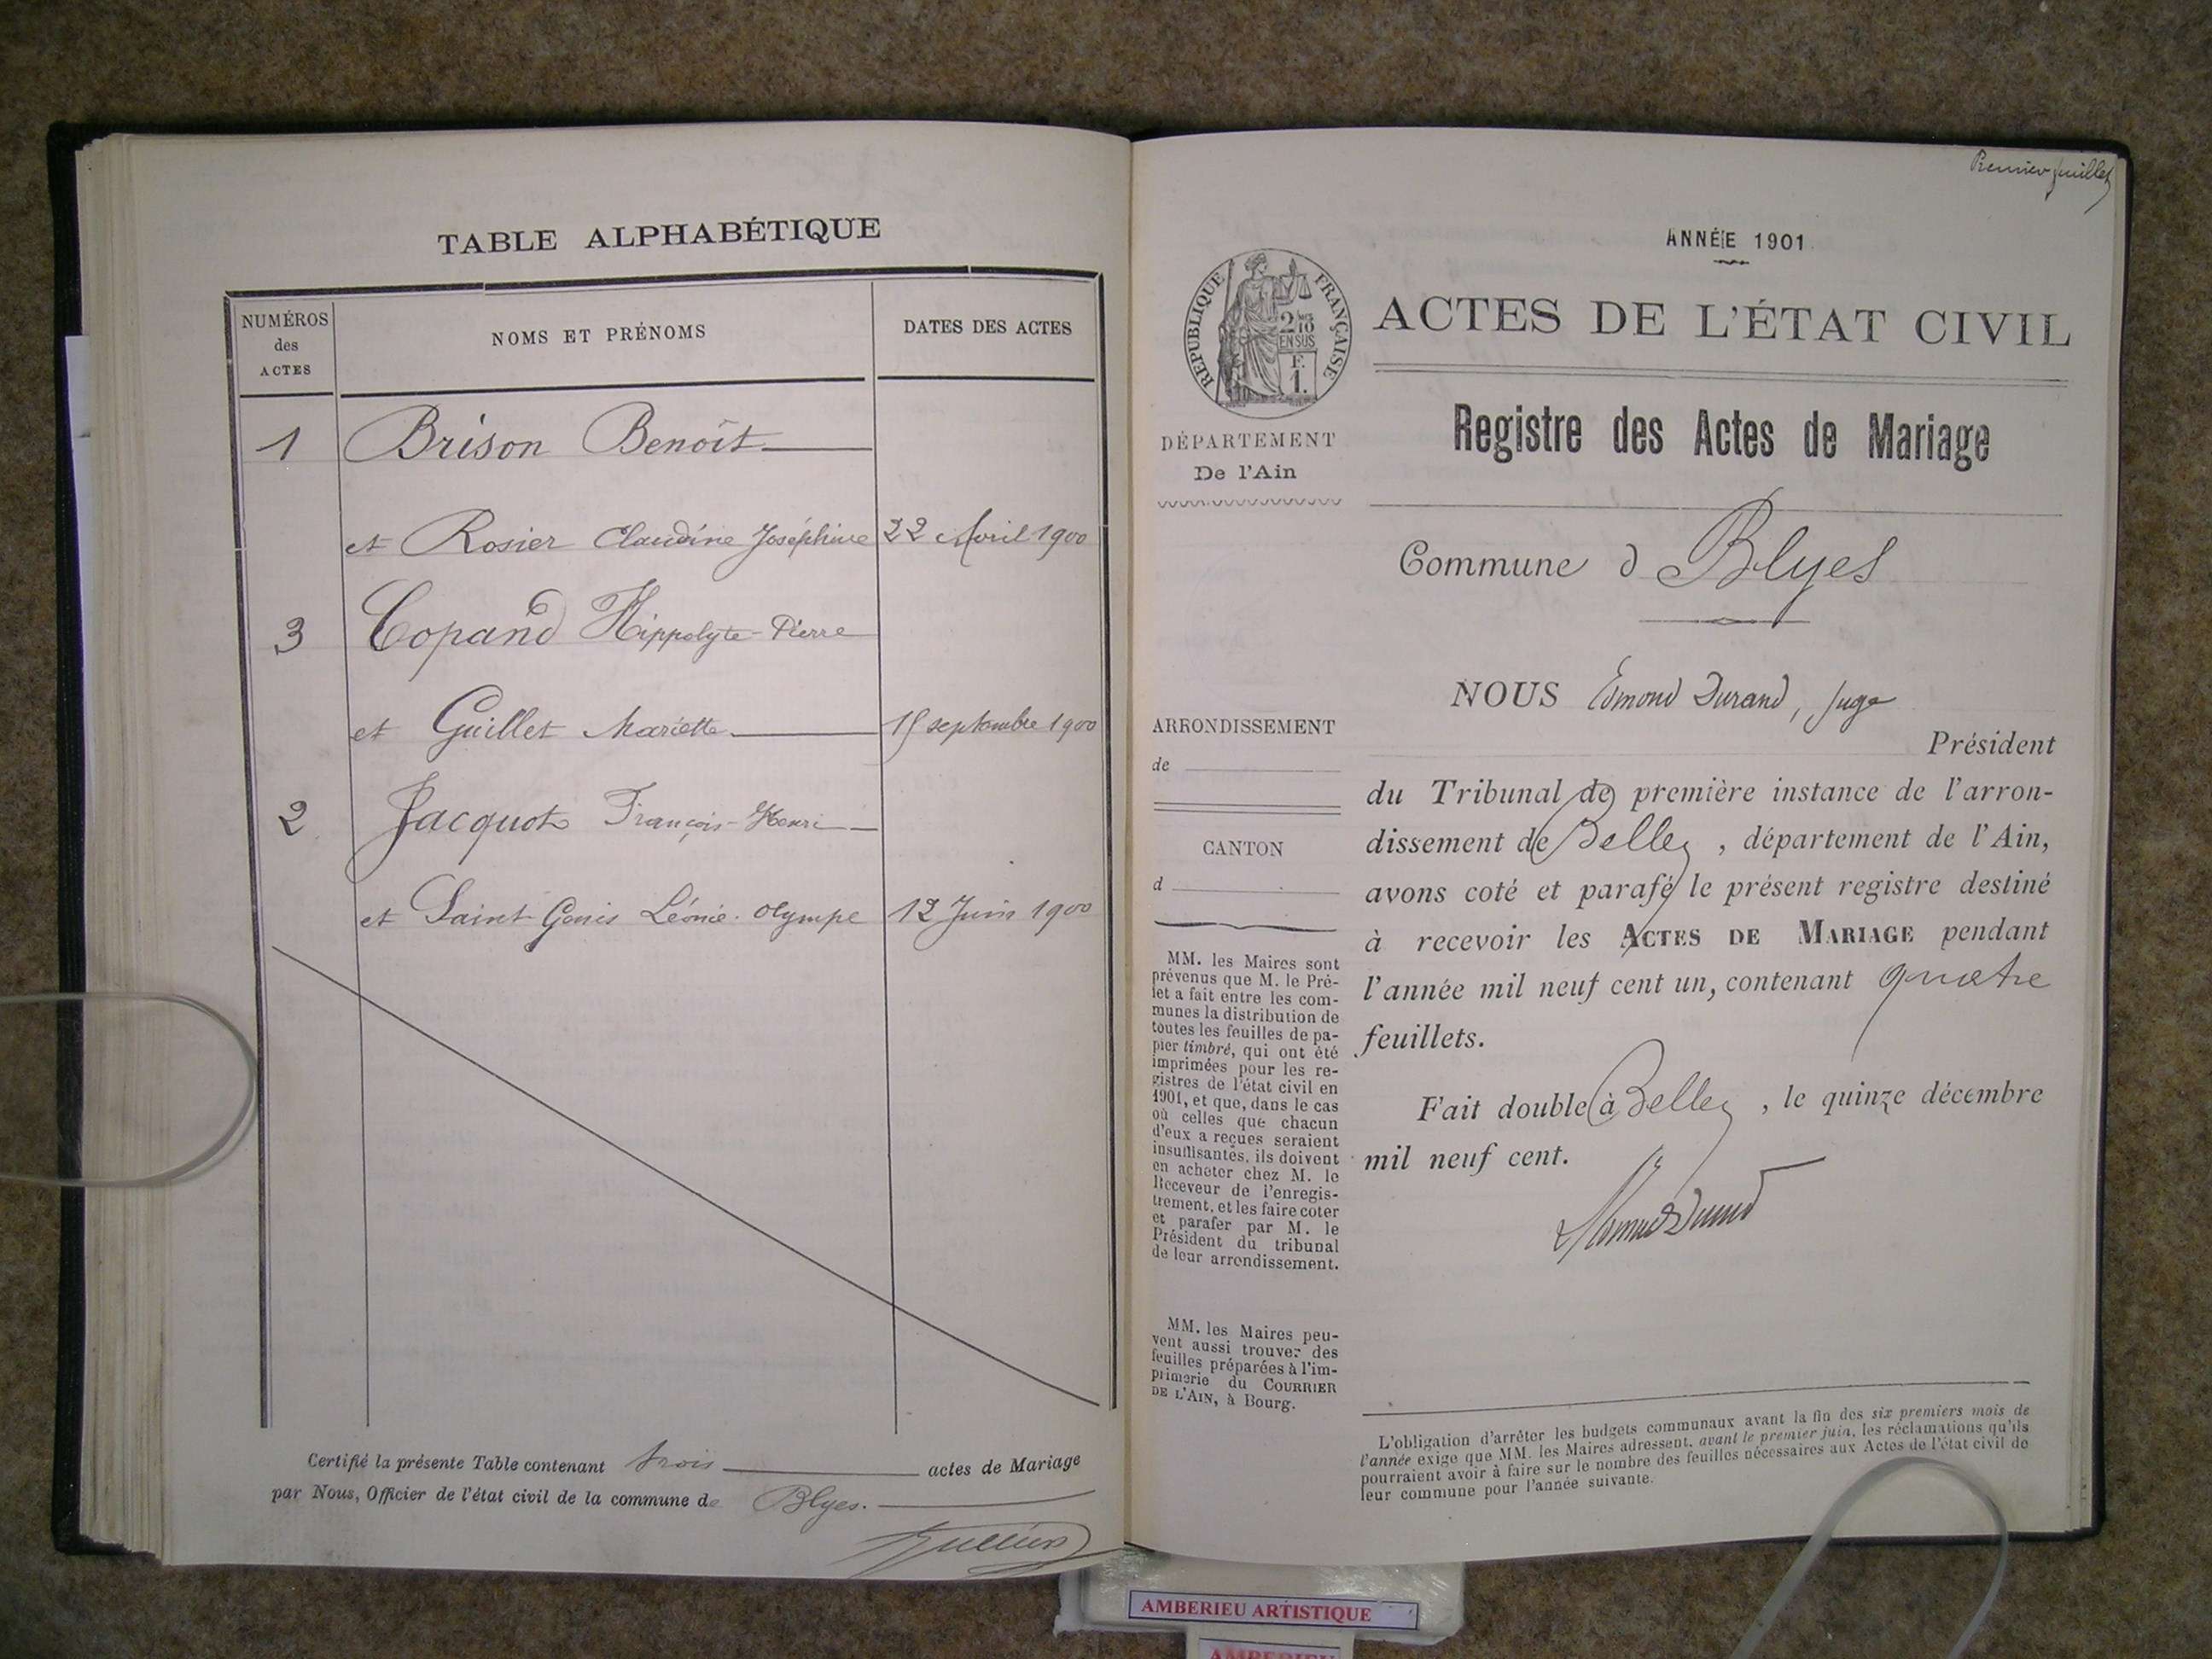 TABLE ALPHABÉTIQUE
NUMÉROS
des
ACTES
NOMS ET PRÉNOMS
DATES DES ACTES
1 Brison Benoît
et Rosier Claudine Joséphine 22 Avril 1900
3 Copand Hippolyte-Pierre
et Guillet Mariette 15 septembre 1900
2 Jacquot François-Henri
et Saint-Genis Léonie-Olympe 12 Juin 1900
Certifié la présente Table contenant trois actes de Mariage
par Nous, Officier de l'état civil de la commune de Blyes.
Premier feuillet
ANNÉE 1901
RÉPUBLIQUE FRANÇAISE
2/10
EN SUS
F.
1.
ACTES DE L'ÉTAT CIVIL
DÉPARTEMENT
De l'Ain
Registre des Actes de Mariage
Commune d Blyes
NOUS Edmond Durand, juge
Président
du Tribunal de première instance de l'arron-
dissement de Belley, département de l'Ain,
avons coté et parafé le présent registre destiné
à recevoir les ACTES DE MARIAGE pendant
l'année mil neuf cent un, contenant quatre
feuillets.
Fait double à Belley, le quinze décembre
mil neuf cent.
ARRONDISSEMENT
de
CANTON
d
MM. les Maires sont
prévenus que M. le Pré-
fet a fait entre les com-
munes la distribution de
toutes les feuilles de pa-
pier timbré, qui ont été
imprimées pour les re-
gistres de l'état civil en
1901, et que, dans le cas
où celles que chacun
d'eux a reçues seraient
insuffisantes, ils doivent
en acheter chez M. le
Receveur de l'enregis-
trement, et les faire coter
et parafer par M. le
Président du tribunal
de leur arrondissement.
MM. les Maires peu-
vent aussi trouver des
feuilles préparées à l'im-
primerie du COURRIER
DE L'AIN, à Bourg.
L'obligation d'arrêter les budgets communaux avant la fin des six premiers mois de
l'année exige que MM. les Maires adressent, avant le premier juin, les réclamations qu'ils
pourraient avoir à faire sur le nombre des feuilles nécessaires aux Actes de l'état civil de
leur commune pour l'année suivante.
AMBERIEU ARTISTIQUE
AMBERIEU